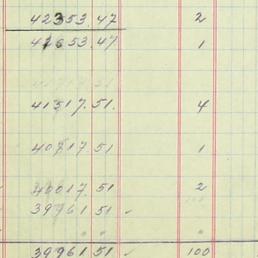 42353.47 2
42653.47 1
41517.51. 4
40717 51 1
40017 51 2
39961 51 ✓
" "
39961 51 100